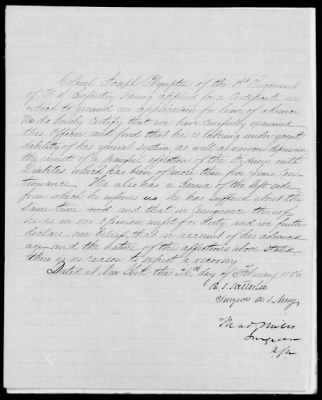 Colonel Joseph Plympton of the 1st Regiment
of U S Infantry having applied for a Certificate on
which to ground an application for leave of absence
We do hereby Certify that we have Carefully examined
this Officer and find that he is laboring under great
debility of his general system as well as nervous depression
the result of a painful affection of the with
Diabetes which has been of more than five years Con-
tinuance. He also has a of the left side
from which he informs us he has suffered about the
same time and that in Consequence thereof
he is in our opinion unfit for duty, and we further
declare our belief, that on account of his advanced
age and the nature of the affections above stated
there is no reason to expect a recovery
Dated at New York this day of February 1856
Surgeon U. S. Army
Mad Mills
Surgeon